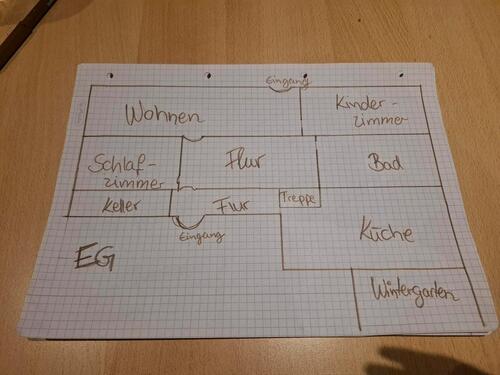 Eingang
Wohnen
Kinder-
zimmer
Schlaf-
zimmer
Flur
Bad
Keller
Flur
Treppe
Eingang
Küche
EG
Wintergarten